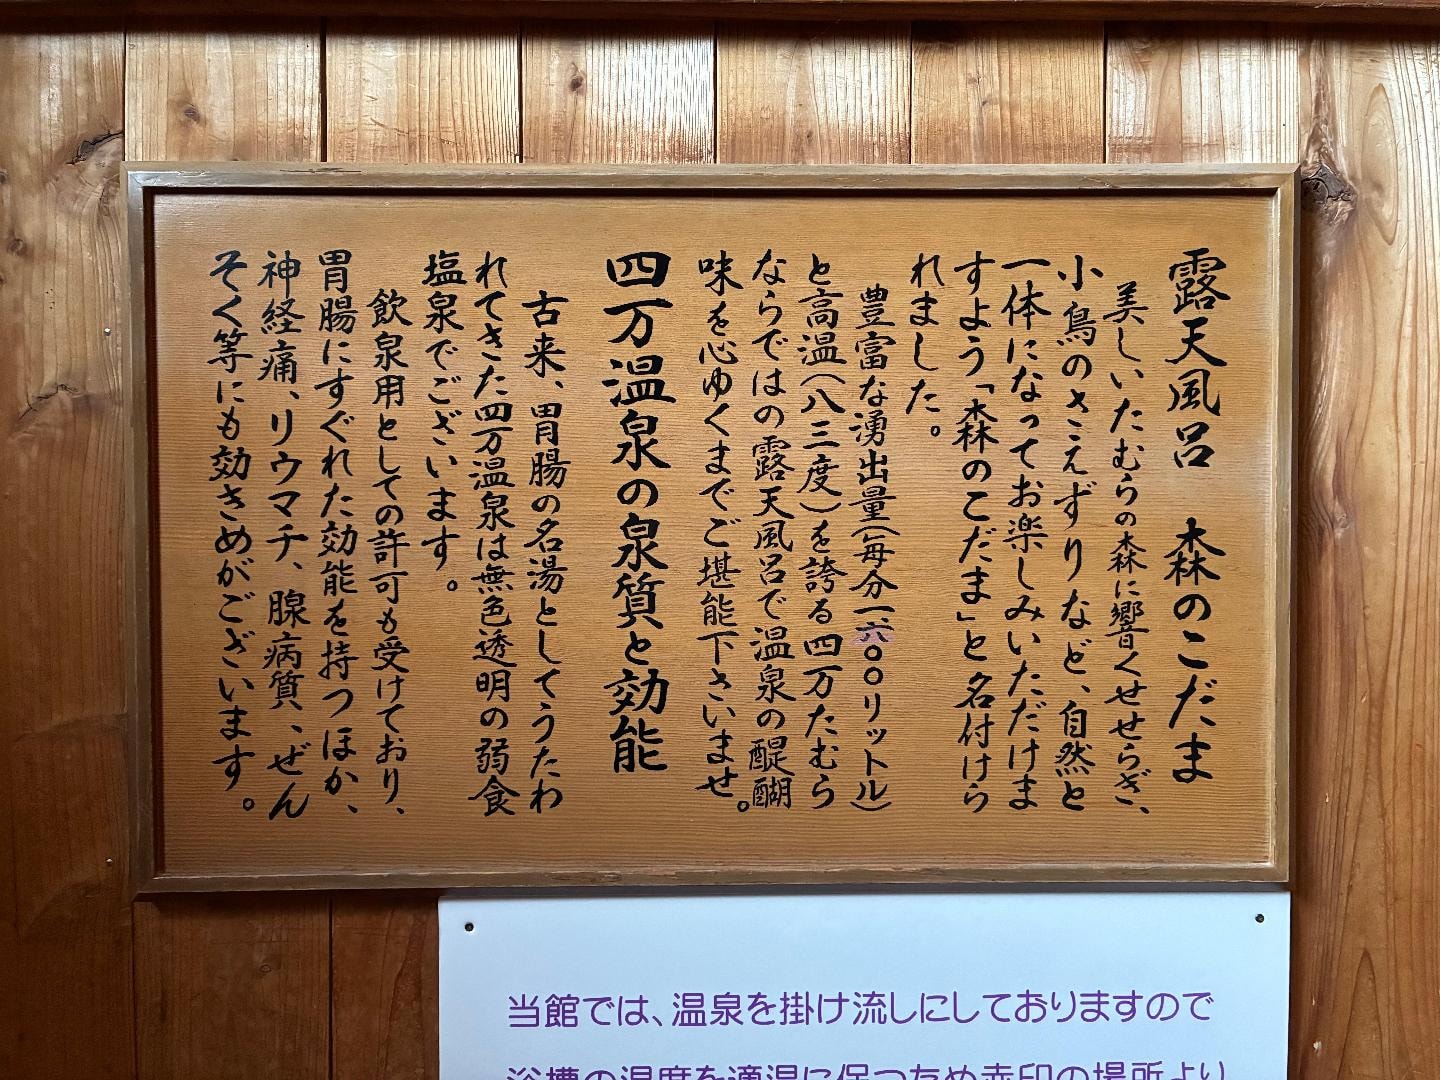 露天風呂 森のこだま
美しいたむらの森に響くせせらぎ、
小鳥のさえずりなど、自然と
一体になってお楽しみいただけま
すよう「森のこだま」と名付けら
れました。
豊富な湧出量(毎分一、六〇〇リットル)
と高温(八三度)を誇る四万たむら
ならではの露天風呂で温泉の醍醐
味を心ゆくまでご堪能下さいませ。
四万温泉の泉質と効能
古来、胃腸の名湯としてうたわ
れてきた四万温泉は無色透明の弱食
塩泉でございます。
飲泉用としての許可も受けており、
胃腸にすぐれた効能を持つほか、
神経痛、リウマチ、腺病質、ぜん
そく等にも効きめがございます。
当館では、温泉を掛け流しにしておりますので
浴槽の温度を適温に保つため赤印の場所より